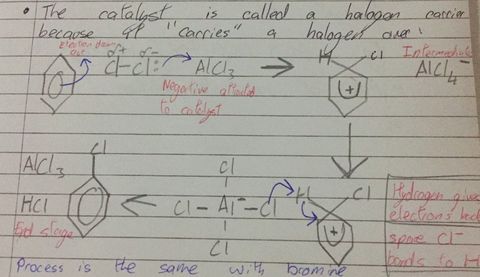 • The catalyst is called a halogen carrier
because it "carries" a halogen over:
δ+ δ-
Cl-Cl: AlCl3
H Cl
(+)
Intermediate
AlCl4-
Negative attracted
to catalyst
Cl
AlCl3
HCl
End stage
Cl
Cl - Al- - Cl
Cl
H Cl
(+)
Hydrogen gives
electrons back
spare Cl-
bonds to H
Process is the same with bromine